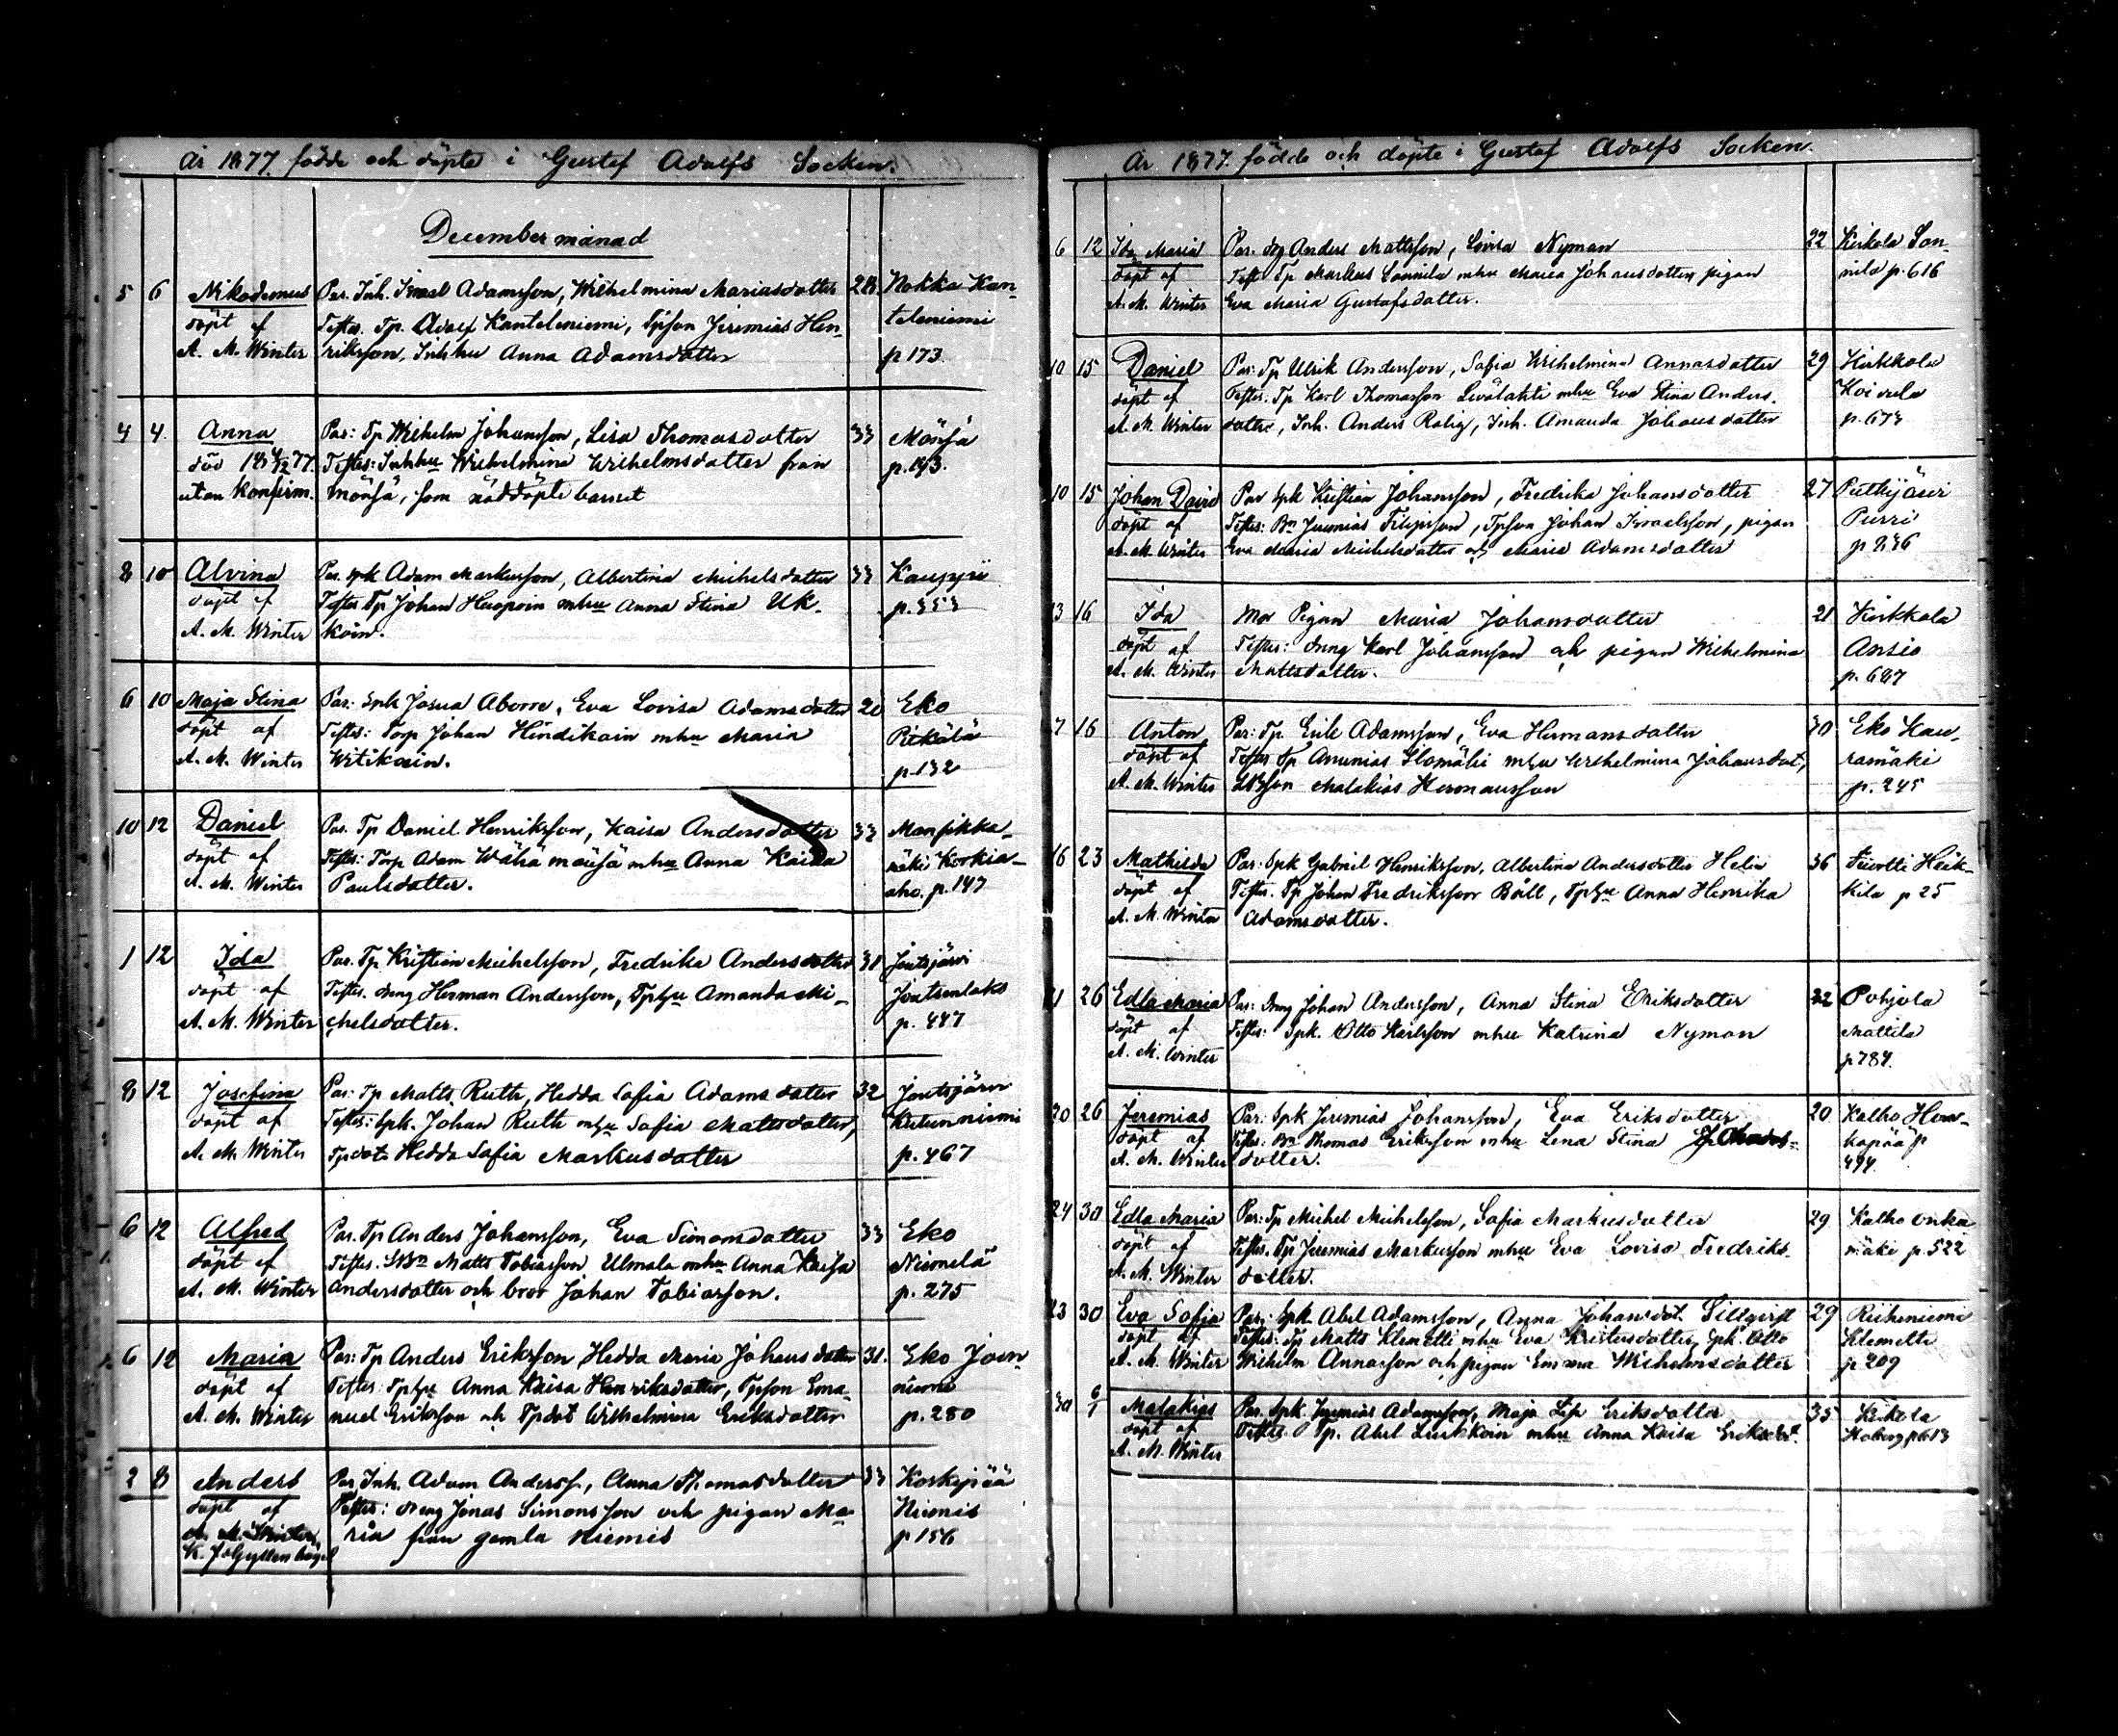 År 1877 födde och döpte i Gustaf Adolfs Socken.
December månad
5 6 Nikodemus Par. Inh. Israel Adamsson, Wilhelmina Mariasdotter 28. Nokka Kan-
döpt af Testes. Tp. Adolf Kanteleniemi, Tpson Jeremias Hen- teleniemi
A. M. Winter rikson, Inhhu Anna Adamsdotter p 173.
4 4. Anna Par: Tp Wilhelm Johansson, Lisa Thomasdotter 33 Mönsä
död 77. Testes: Inhhu Wilhelmina Wilhelmsdotter från p. 193.
utan konfirm. Mönsä, som nöddöpte barnet
8 10 Alvina Par. Spk Adam Markusson, Albertina Michelsdotter 33 Kauppi
döpt af Testes Tp Johan mhu Anna Stina Uk- p. 353
A. M. Winter koin.
6 10 Maja Stina Par: Spk Josua Aborre, Eva Lovisa Adamsdotter 20 Eko
döpt af Testes: Torp Johan Hindikain mhu Maria
A. M. Winter Witikain. p. 132
10 12 Daniel Par. Tp Daniel Henriksson, Kaisa Andersdotter 33 Mansikka-
döpt af Testes: Torp Adam Wähä mönsä mhu Anna Kaisa mäki Korkia-
A. M. Winter Paulsdotter. aho. p. 147
1 12 Ida Par. Tp Kristian Michelsson, Fredrika Andersdotter 31 Joutsjärvi
döpt af Testes. dräng Herman Andersson, Tphu Amanda Mi-
A. M. Winter chelsdotter. p. 447
8 12 Josefina Par: Tp Matts Ruth, Hedda Sofia Adamsdotter 32 Joutsjärvi
döpt af Testes: Spk. Johan Ruth mhu Sofia Mattsdotter,
A. M. Winter Tpdotr Hedda Sofia Markusdotter p. 467
6 12 Alfred Par. Tp Anders Johansson, Eva Simonsdotter 33 Eko
döpt af Testes. Matts Tobiasson Ulmala mhu Anna Kaisa Niemelä
A. M. Winter Andersdotter och bror Johan Tobiasson. p. 275
6 12 Maria Par: Tp Anders Eriksson Hedda Maria Johansdotter 31. Eko Joen
döpt af Testes: Tphu Anna Kaisa Henriksdotter, Tpson Ema- niemi
A. M. Winter nuel Eriksson och Tpdot Wilhelmina Eriksdotter p. 280
2 8 Anders Par Inh. Adam Anderss, Anna Thomasdotter 33 Koskipää
döpt af Testes: dräng Jonas Simonsson och pigan Ma- Niemis
A. M. Winter ria från gamla Niemis p 156
K. J. Gyllenbögel
År 1877 födde och döpte i Gustaf Adolfs Socken.
6 12 Ida Maria Par. dräng Anders Mattsson, Lovisa Nyman 22 Kirkola Son-
döpt af Test. Tp Markus Sonnila mhu Maria Johansdotter, pigan nila p. 616
A. M. Winter Eva Maria Gustafsdotter.
10 15 Daniel Par: Tp Ulrik Andersson, Sofia Wilhelmina Annasdotter 29 Kirkkola
döpt af Testes. Tp Karl Thomasson mhu Eva Stina Anders- Koivula
A. M. Winter dotter, Inh. Anders Rolig, Inh. Amanda Johansdotter p. 673
10 15 Johan David Par Spk Kristian Johansson, Fredrika Johansdotter 27
döpt af Testes: Bn Jeremias Filipsson, Tpson Johan Israelsson, pigan Purri
A. M. Winter Eva Maria Michelsdotter och Maria Adamsdotter p 236
13 16 Ida Mor Pigan Maria Johansdotter 21 Kirkkola
döpt af Testes: dräng Karl Johansson och pigan Wilhelmina Ansio
A. M. Winter Mattsdotter. p. 687
7 16 Anton Par: Tp. Erik Adamsson, Eva Hermansdotter 30 Eko Kau-
döpt af Testes Tp Ananias Ilomäki mhu Wilhelmina Johansdot, ramäki
A. M. Winter Malakias Hermansson p. 245
16 23 Mathilda Par: Spk Gabriel Henriksson, Albertina Andersdotter Helin 36 Heik-
döpt af Testes. Tp Johan Fredriksson Båll, Tphu Anna Henrika kila p 25
A. M. Winter Adamsdotter.
21 26 Edla Maria Par: dräng Johan Andersson, Anna Stina Eriksdotter 22 Pohjola
döpt af Testes: Spk. Otto Karlsson mhu Katrina Nyman Mattila
A. M. Winter p 784.
20 26 Jeremias Par: Spk Jeremias Johansson, Eva Eriksdotter 20 Kalho Hon-
döpt af Testes: Bn Thomas Eriksson mhu Lena Stina kapää p
A. M. Winter dotter. 494.
24 30 Edla Maria Par: Tp Michel Michelsson, Sofia Markusdotter 29 Kalho Onki
döpt af Testes. Tp Jeremias Markusson mhu Eva Lovisa Fredriks- mäki p. 522
A. M. Winter dotter.
23 30 Eva Sofia Par: Spk. Abel Adamsson, Anna Johansdot. Sillqvist 29 Riiheniemi
döpt af Testes: Tp Matts Klemetti mhu Eva Kristersdotter, Spk. Otto Klemetti
A. M. Winter Wilhelm Annasson och pigan Emma Wilhelmsdotter p 209
30 6/1 Malakias Par. Spk Jeremias Adamsson, Maja Lisa Eriksdotter 35 Kirkola
döpt af Testes. Tp. Abel mhu Anna Kaisa Eriksdot. Hoberg p 613
A. M. Winter